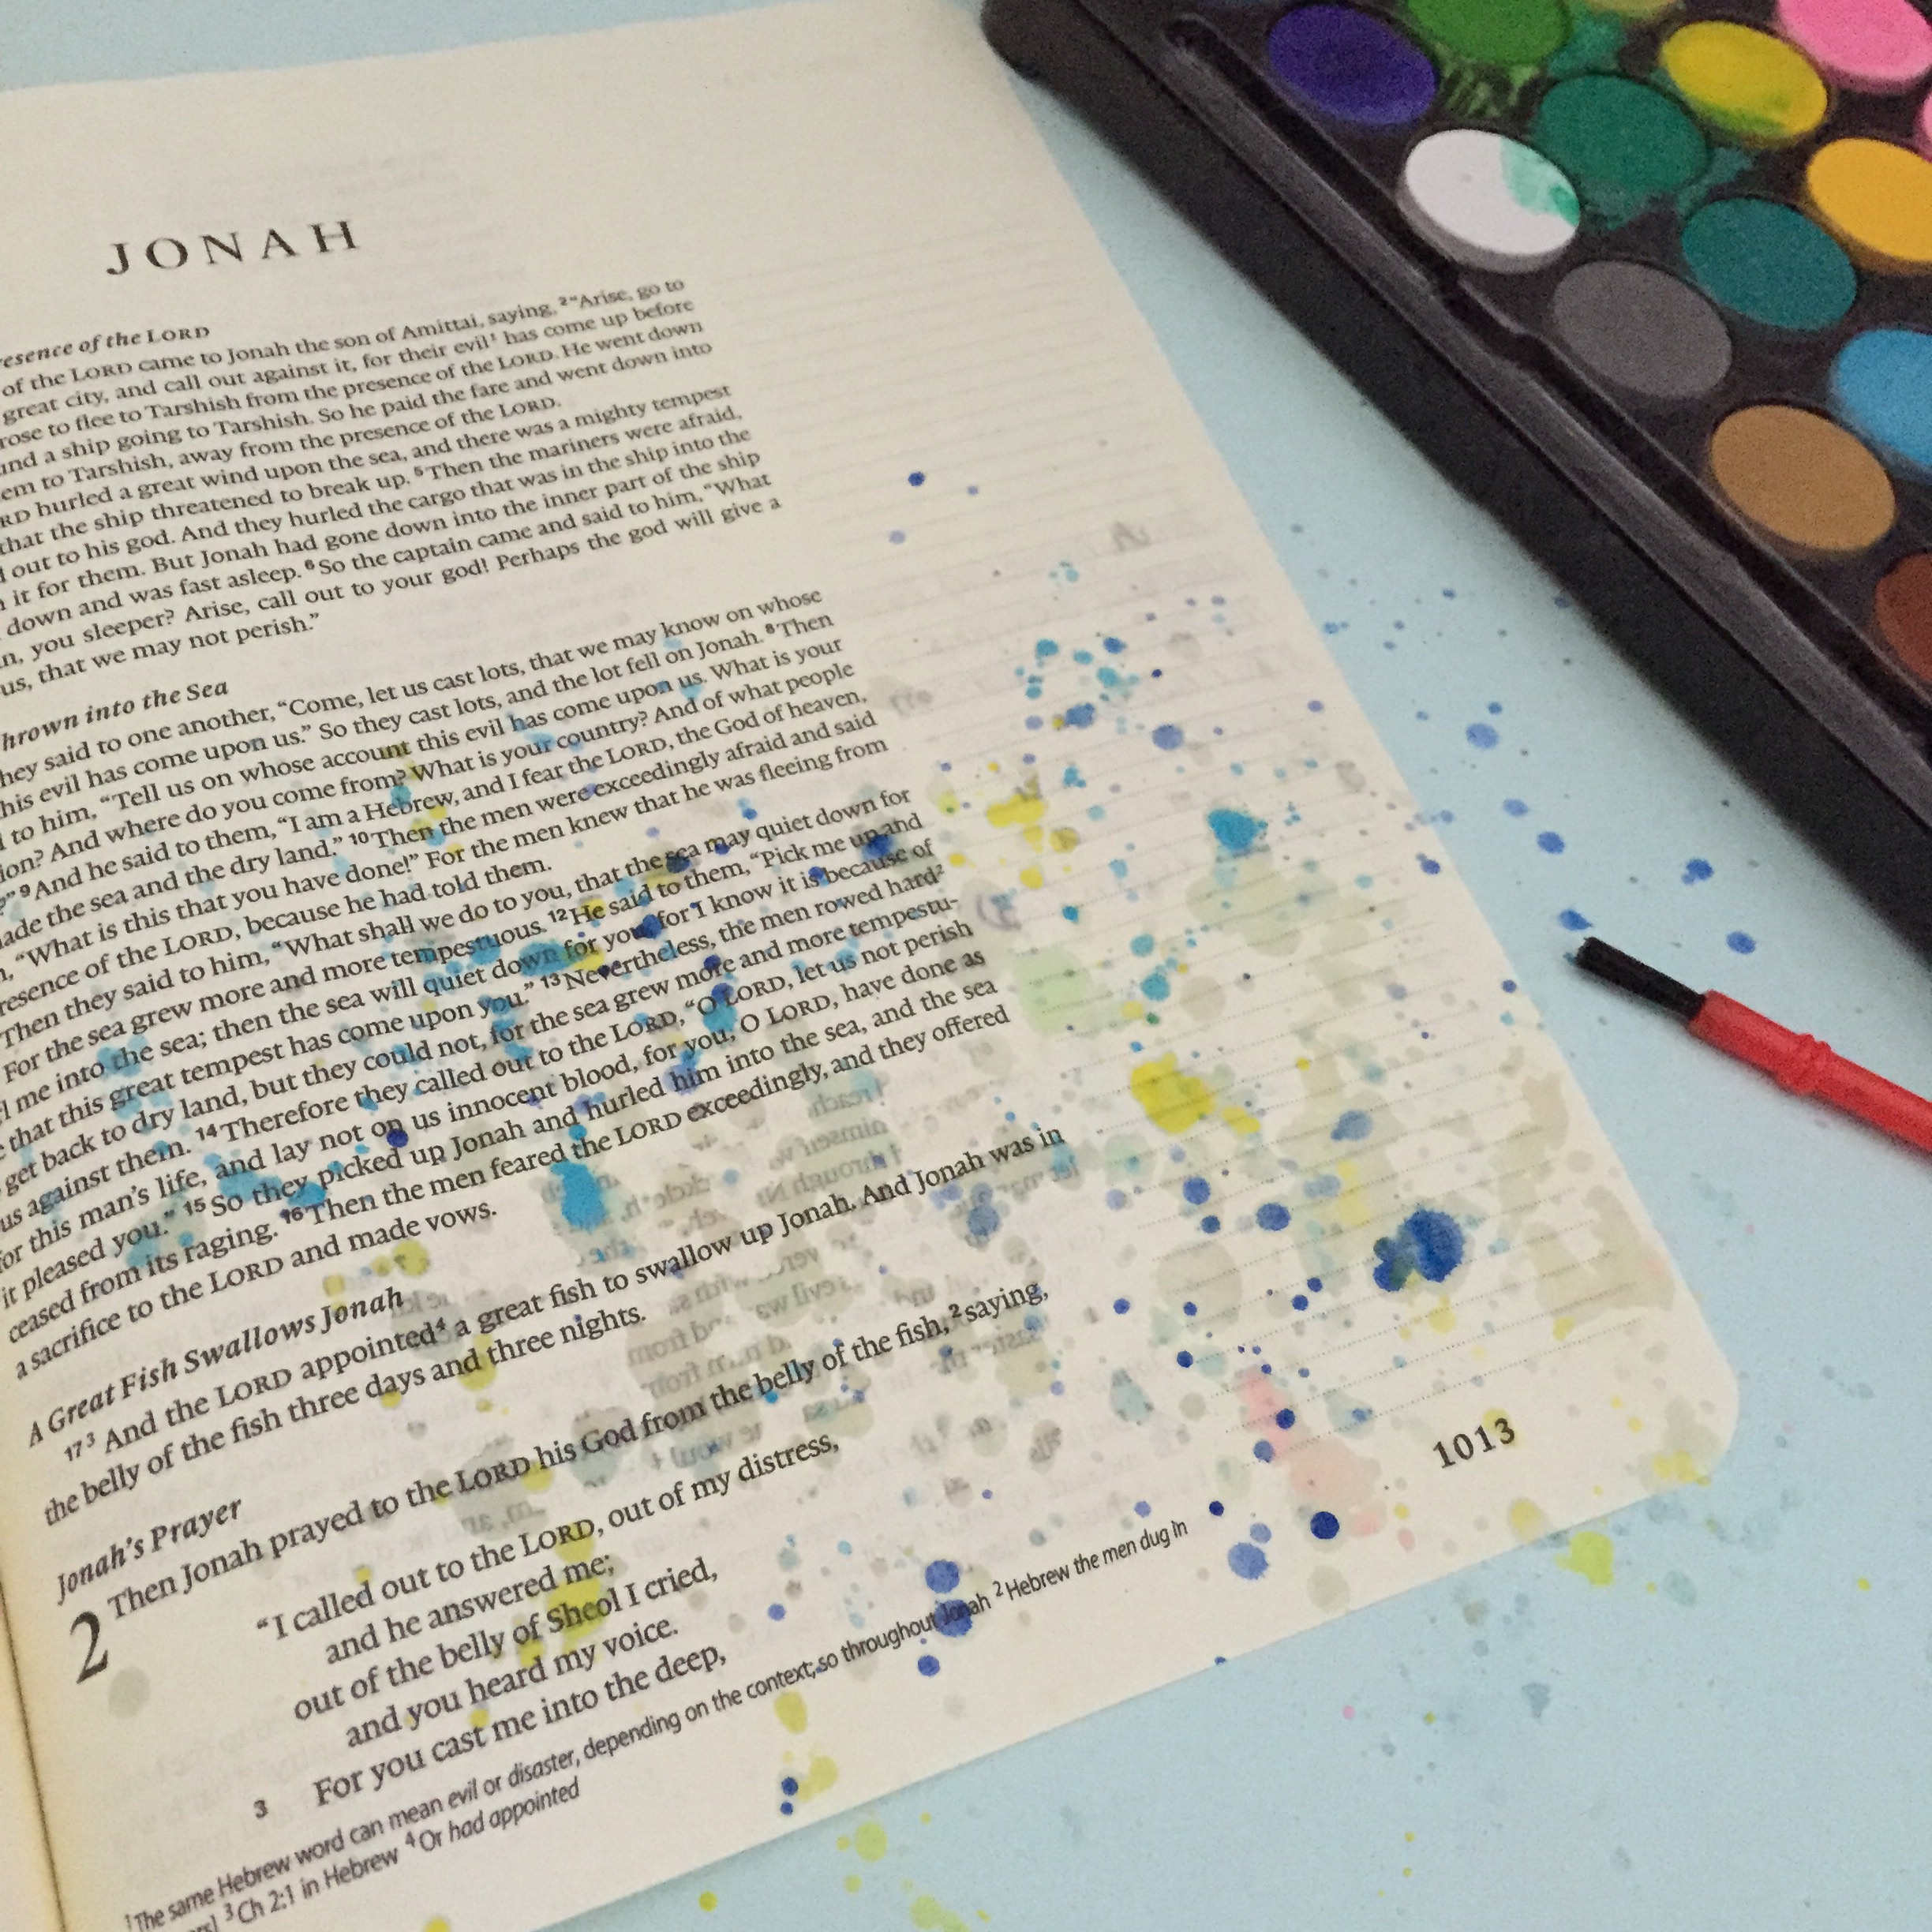 JONAH
resence of the LORD
of the LORD came to Jonah the son of Amittai, saying, 2“Arise, go to
great city, and call out against it, for their evil1 has come up before
rose to flee to Tarshish from the presence of the LORD. He went down
und a ship going to Tarshish. So he paid the fare and went down into
em to Tarshish, away from the presence of the LORD.
RD hurled a great wind upon the sea, and there was a mighty tempest
that the ship threatened to break up. 5Then the mariners were afraid,
d out to his god. And they hurled the cargo that was in the ship into the
n it for them. But Jonah had gone down into the inner part of the ship
down and was fast asleep. 6So the captain came and said to him, “What
n, you sleeper? Arise, call out to your god! Perhaps the god will give a
us, that we may not perish.”
hrown into the Sea
hey said to one another, “Come, let us cast lots, that we may know on whose
his evil has come upon us.” So they cast lots, and the lot fell on Jonah. 8Then
d to him, “Tell us on whose account this evil has come upon us. What is your
ion? And where do you come from? What is your country? And of what people
?” 9And he said to them, “I am a Hebrew, and I fear the LORD, the God of heaven,
ade the sea and the dry land.” 10Then the men were exceedingly afraid and said
, “What is this that you have done!” For the men knew that he was fleeing from
resence of the LORD, because he had told them.
Then they said to him, “What shall we do to you, that the sea may quiet down for
For the sea grew more and more tempestuous. 12He said to them, “Pick me up and
l me into the sea; then the sea will quiet down for you, for I know it is because of
that this great tempest has come upon you.” 13Nevertheless, the men rowed hard2
get back to dry land, but they could not, for the sea grew more and more tempestu-
us against them. 14Therefore they called out to the LORD, “O LORD, let us not perish
for this man’s life, and lay not on us innocent blood, for you, O LORD, have done as
it pleased you.” 15So they picked up Jonah and hurled him into the sea, and the sea
ceased from its raging. 16Then the men feared the LORD exceedingly, and they offered
a sacrifice to the LORD and made vows.
A Great Fish Swallows Jonah
17 3 And the LORD appointed4 a great fish to swallow up Jonah. And Jonah was in
the belly of the fish three days and three nights.
Jonah’s Prayer
2 Then Jonah prayed to the LORD his God from the belly of the fish, 2saying,
“I called out to the LORD, out of my distress,
and he answered me;
out of the belly of Sheol I cried,
and you heard my voice.
3 For you cast me into the deep,
1The same Hebrew word can mean evil or disaster, depending on the context; so throughout Jonah 2Hebrew the men dug in
rs] 3Ch 2:1 in Hebrew 4Or had appointed
1013